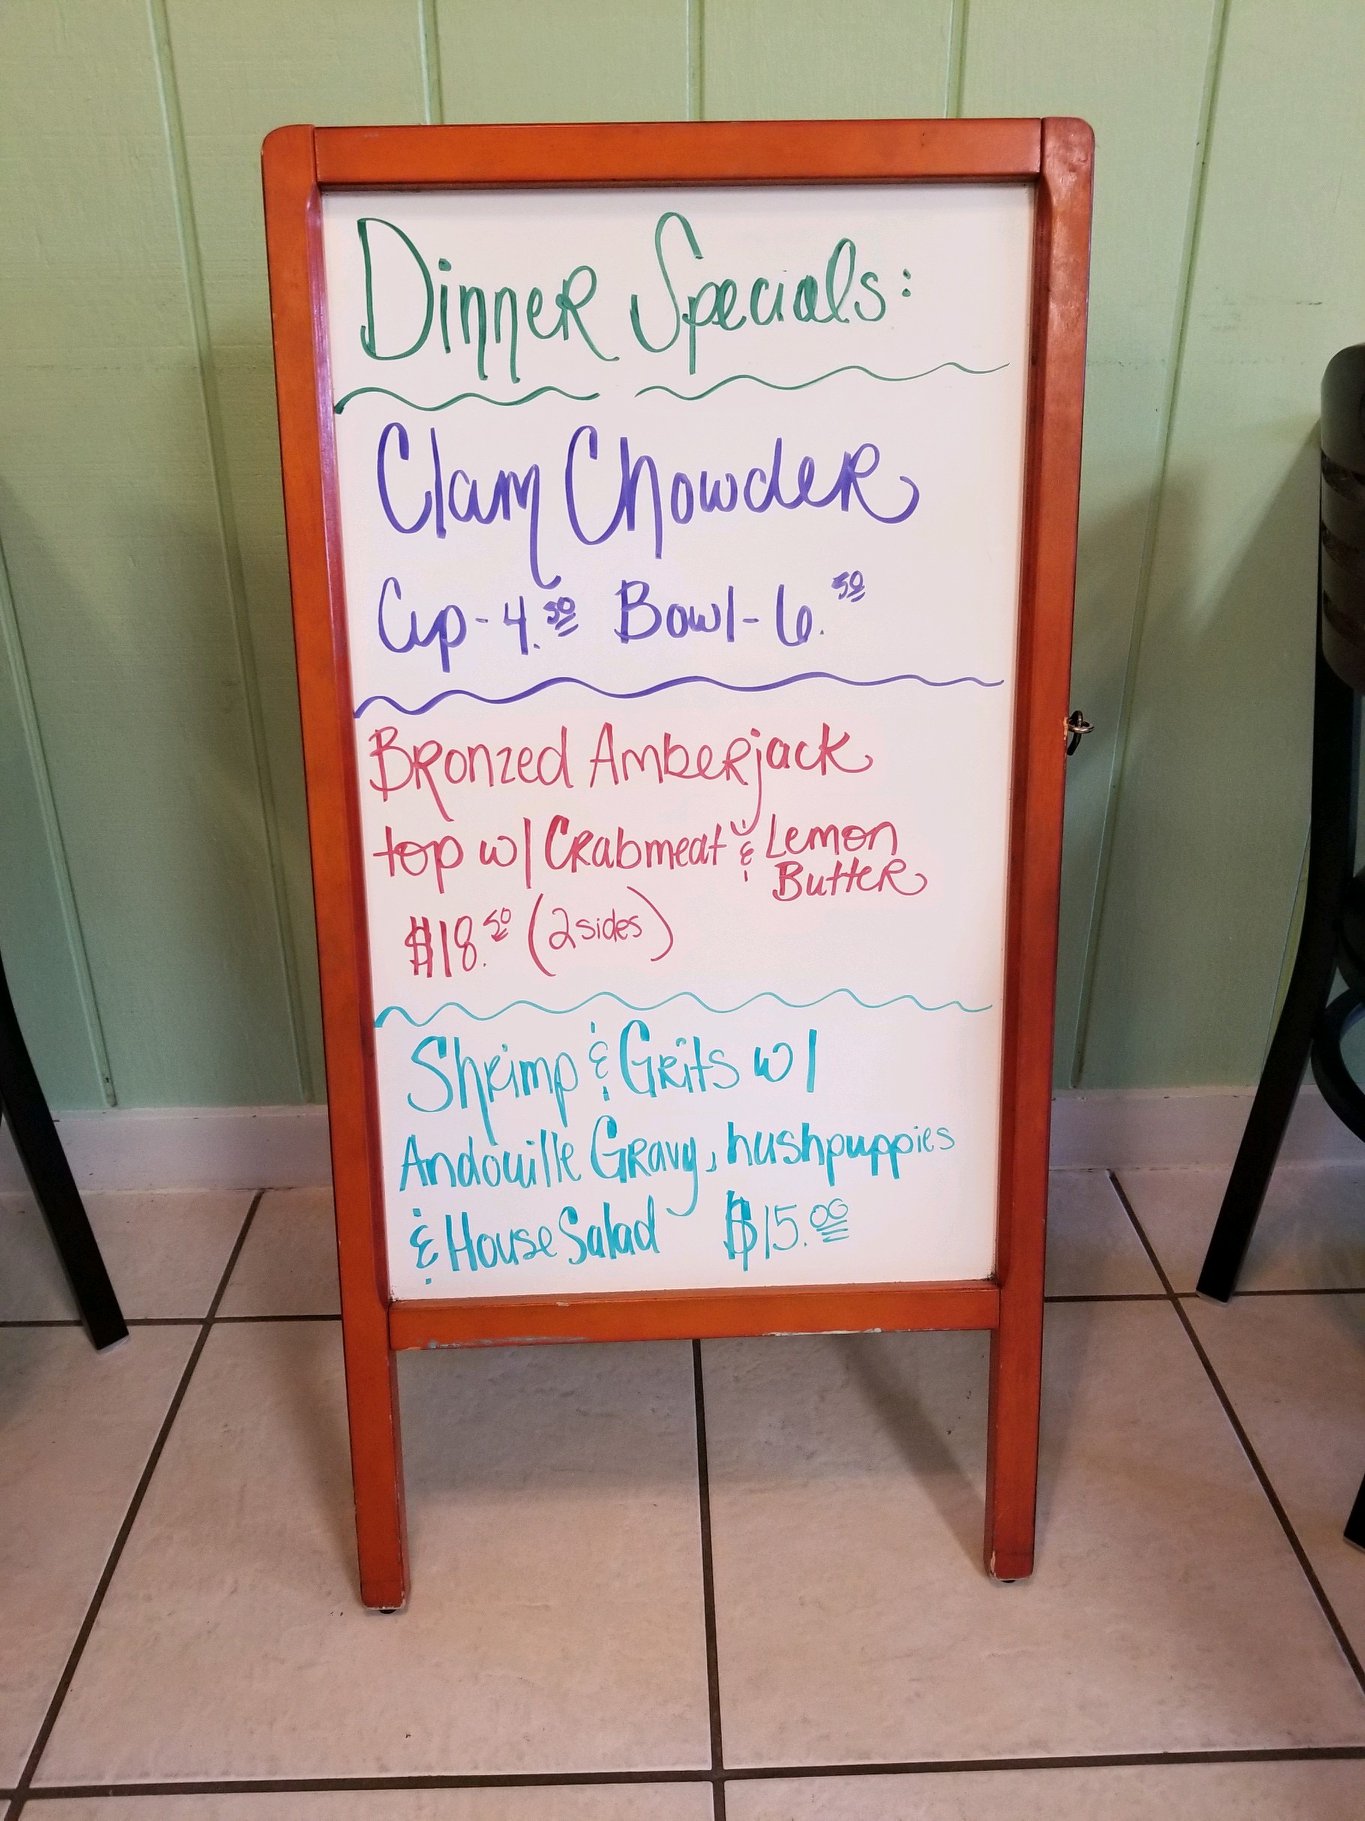 Dinner Specials:
Clam Chowder
Cup - 4.50 Bowl - 6.50
Bronzed Amberjack
top w/ Crabmeat & Lemon
Butter
$18.50 (2 sides)
Shrimp & Grits w/
Andouille Gravy, hushpuppies
& House Salad $15.00